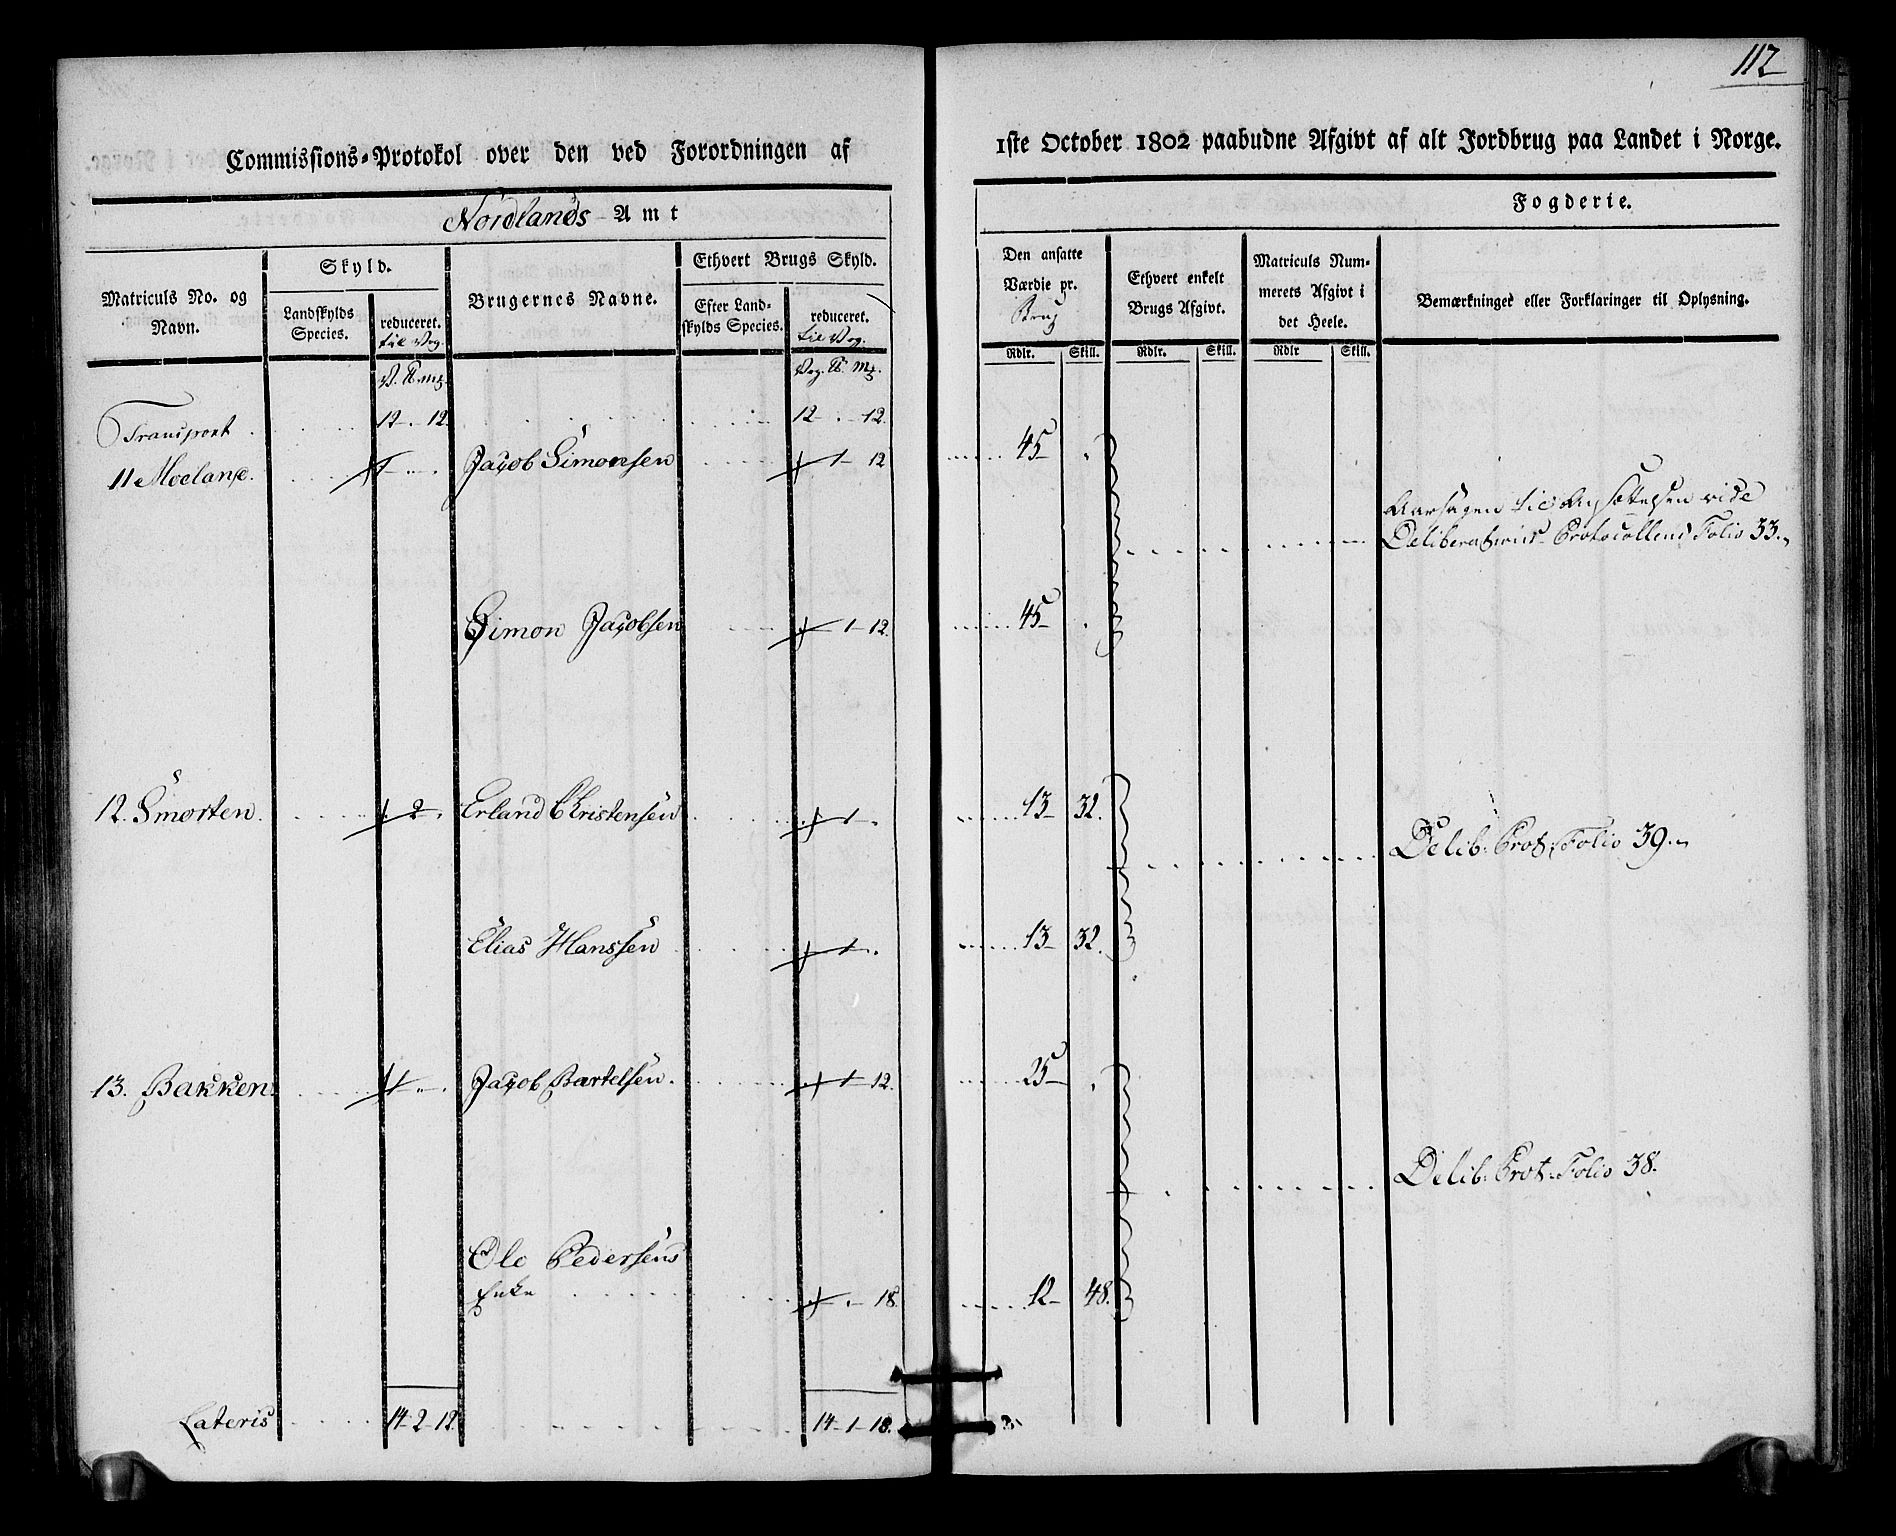 112
Commissions-Protokol over den ved Forordningen af
1ste October 1802 paabudne Afgivt af alt Jordbrug paa Landet i Norge.
Nordlands Amt
Fogderie.
Matriculs No. og Navn.
Skyld.
Landskylds Species.
reduceret. til Vog.
Brugernes Navne.
Ethvert Brugs Skyld.
Efter Landskylds Species.
reduceret. til Vog.
Den ansatte Værdie pr. Brug
Ethvert enkelt Brugs Afgivt.
Matriculs Nummerets Afgivt i det Heele.
Bemærkninger eller Forklaringer til Oplysning.
V. ℔. mk. Vog. ℔. Mk. Rdlr. Skill. Rdlr. Skill. Rdlr Skill.
Transport 12 - . - 12 12 - . - 12.
11 Moelane. 1 Jacob Simonsen 1 - 12 45 -
Aarsagen til Ansættelsen vide
Deliberations-Protocollens Folio 33.
Simon Jacobsen 1 - 12. 45 -
12. Smorten. 2 Erland Christensen 1 13 - 32.
Delib: Prot: Folio 39.
Elias Hanssen 1 13 - 32.
13. Bakken 1 Jacob Bartelsen. 1 - 12. 25 -
Delib: Prot: Folio 38.
Ole Pedersens
Enke 18. 12 - 48.
Lateris 14 - 2 - 12 14 - 1 - 18.